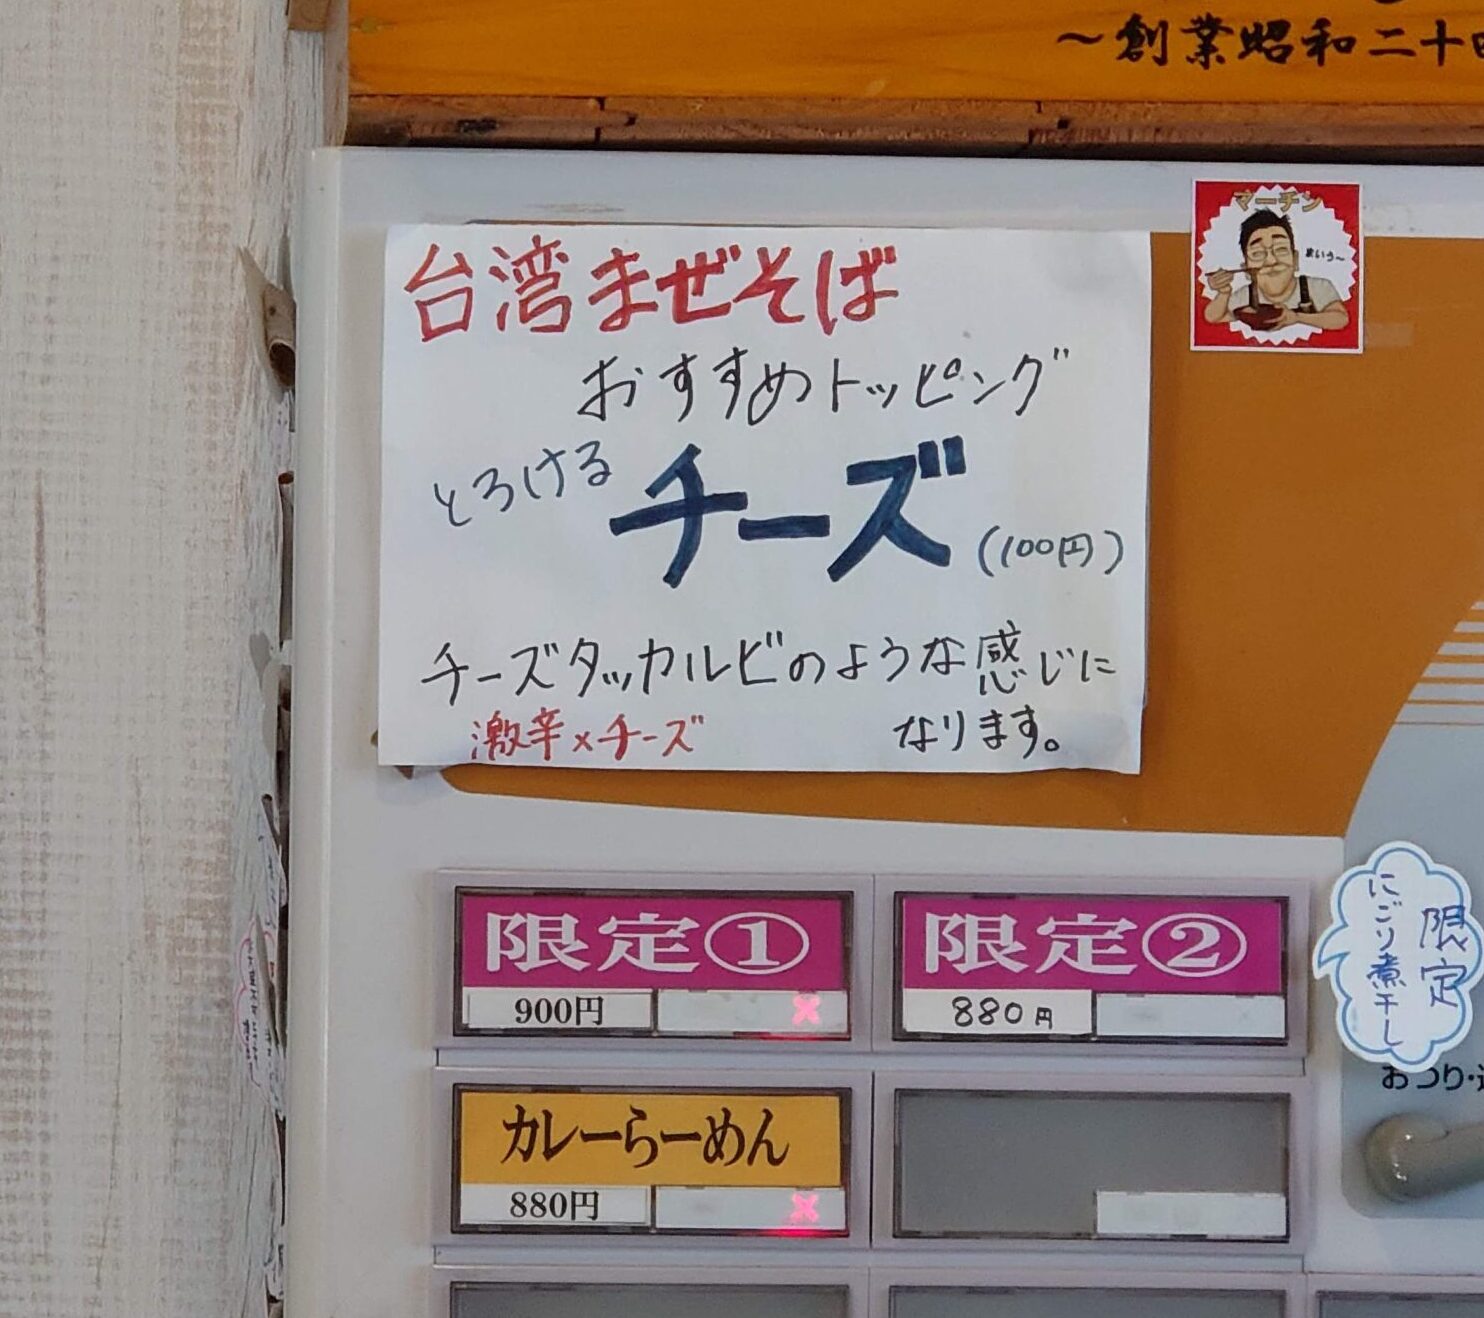 ～創業昭和二十
マーチン
まいう～
台湾まぜそば
おすすめトッピング
とろける
チーズ
(100円)
チーズタッカルビのような感じに
なります。
激辛×チーズ
限定①
900円
限定②
880円
限定
にごり煮干し
おつり・
カレーらーめん
880円